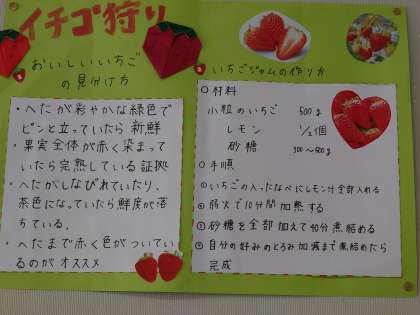 イチゴ狩り
おいしいいちご
の見分け方
・へたが彩やかな緑色で
ピンと立っていたら新鮮
・果実全体が赤く染まって
いたら完熟している証拠
・へたがしなびれていたり、
茶色になっていたら鮮度が落
ちている。
・へたまで赤く色がついてい
るのがオススメ
いちごジャムの作り方
○材料
小粒のいちご 500g
レモン 1/2個
砂糖
○手順
①いちごの入ったなべにレモン汁全部入れる
②弱火で10分間加熱する
③砂糖を全部加えて40分煮詰める
④自分の好みのとろみ加減まで煮詰めたら
完成